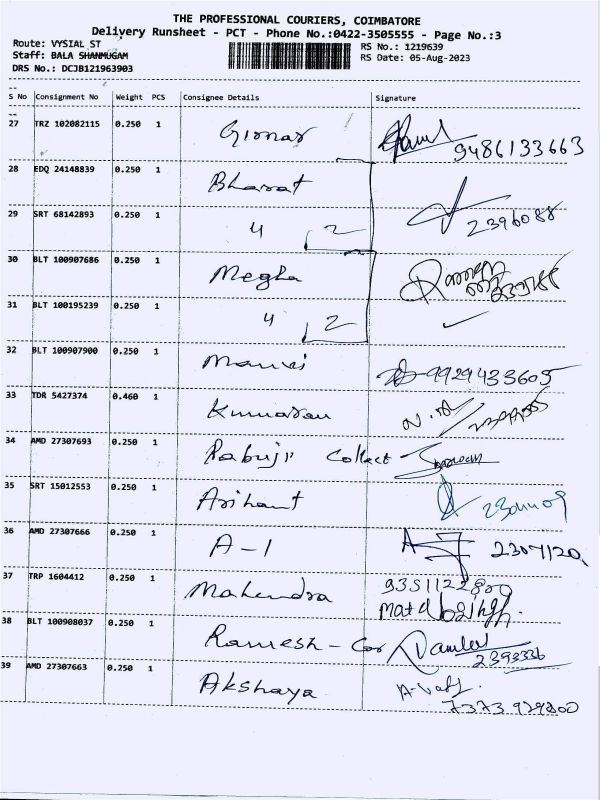 THE PROFESSIONAL COURIERS, COIMBATORE
Delivery Runsheet - PCT - Phone No.:0422-3505555 - Page No.:3
Route: VYSIAL ST
RS No.: 1219639
Staff: BALA SHANMUGAM
RS Date: 05-Aug-2023
DRS No.: DCJB121963903
S No Consignment No Weight PCS Consignee Details Signature
27 TRZ 102082115 0.250 1 Girnar
9486133663
28 EDQ 24148839 0.250 1 Bharat
29 SRT 68142893 0.250 1 4 2 2396088
30 BLT 100907686 0.250 1 Megha
31 BLT 100195239 0.250 1 4 2
32 BLT 100907900 0.250 1 9929433605
33 TDR 5427374 0.460 1 Kumaran
34 AMD 27307693 0.250 1 Rabuji Collect
35 SRT 15012553 0.250 1 Arihant
36 AMD 27307666 0.250 1 A-1 2307120
37 TRP 1604412 0.250 1 Mahendra
38 BLT 100908037 0.250 1 Ramesh - Cor
2393336
39 AMD 27307663 0.250 1 Akshaya
7373929800